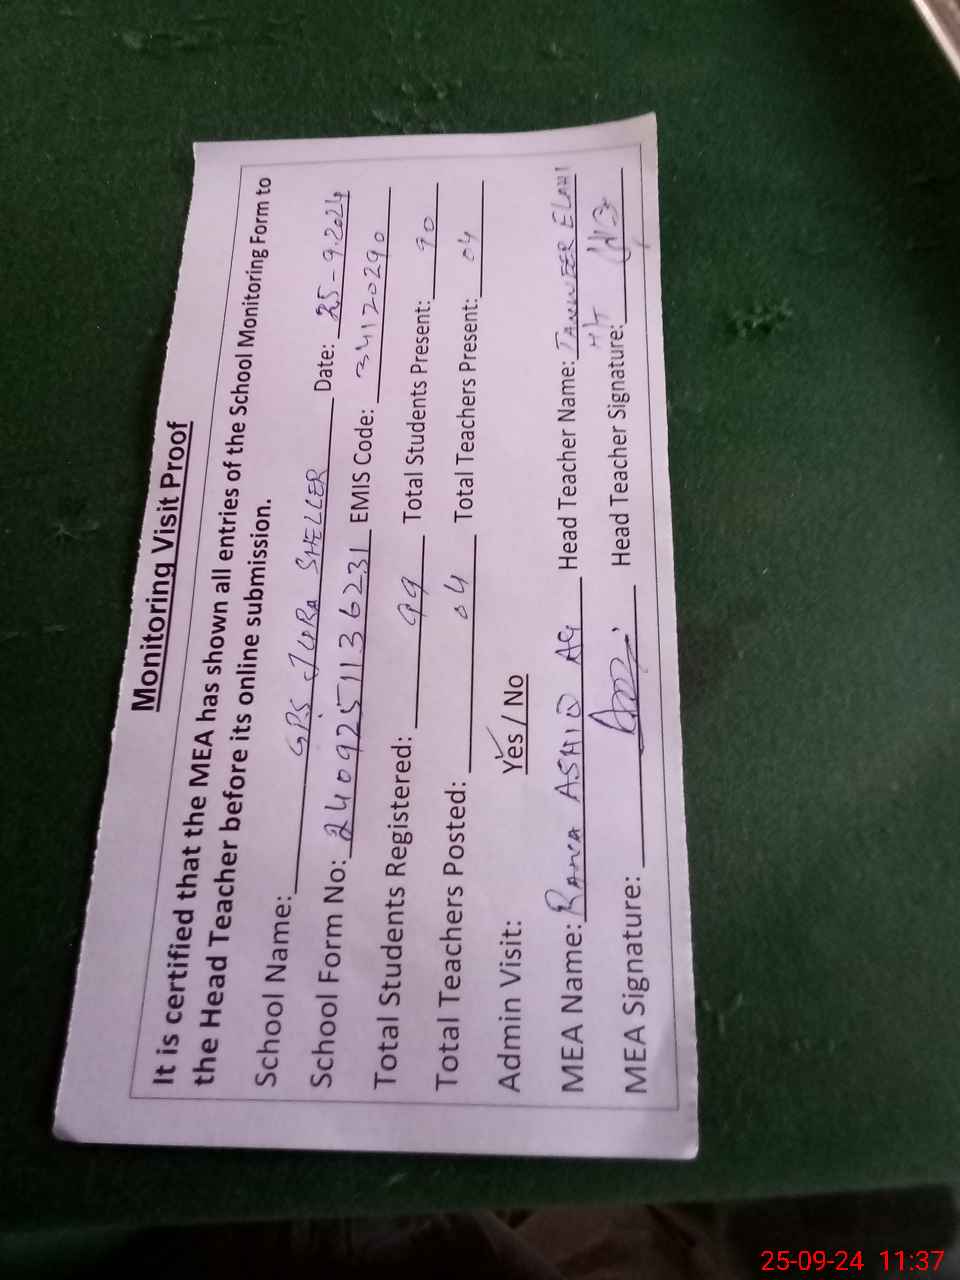 Monitoring Visit Proof
It is certified that the MEA has shown all entries of the School Monitoring Form to
the Head Teacher before its online submission.
School Name: GPS JURA SHELLER Date: 25-9-2024
School Form No: 2409251136231 EMIS Code: 34120290
Total Students Registered: 99 Total Students Present: 90
Total Teachers Posted: 04 Total Teachers Present: 04
Admin Visit: Yes / No
MEA Name: RANA ASHIQ Head Teacher Name: TANVEER ELAHI
MEA Signature: Head Teacher Signature:
25-09-24 11:37